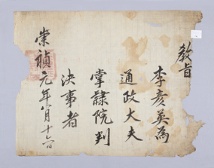 敎旨
李彦英爲
通政大夫
掌隷院判
決事者
崇禎元年八月十六日